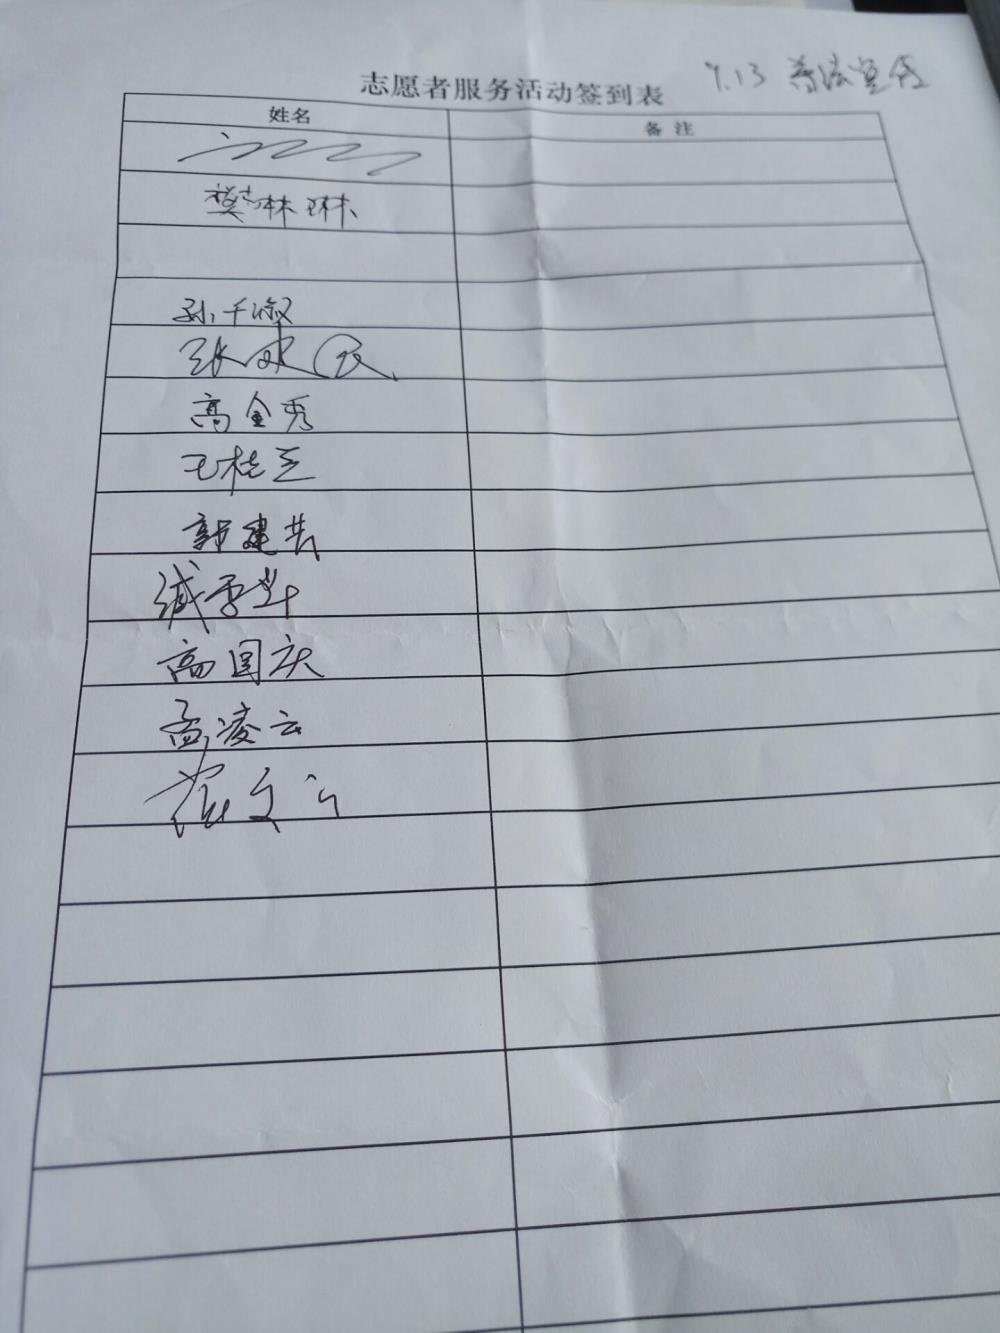 志愿者服务活动签到表
9.13 普法宣传
姓名
备注
樊琳琳
孙千淑
张建民
高金秀
王桂兰
郭建英
臧雪华
高国庆
孟凌云